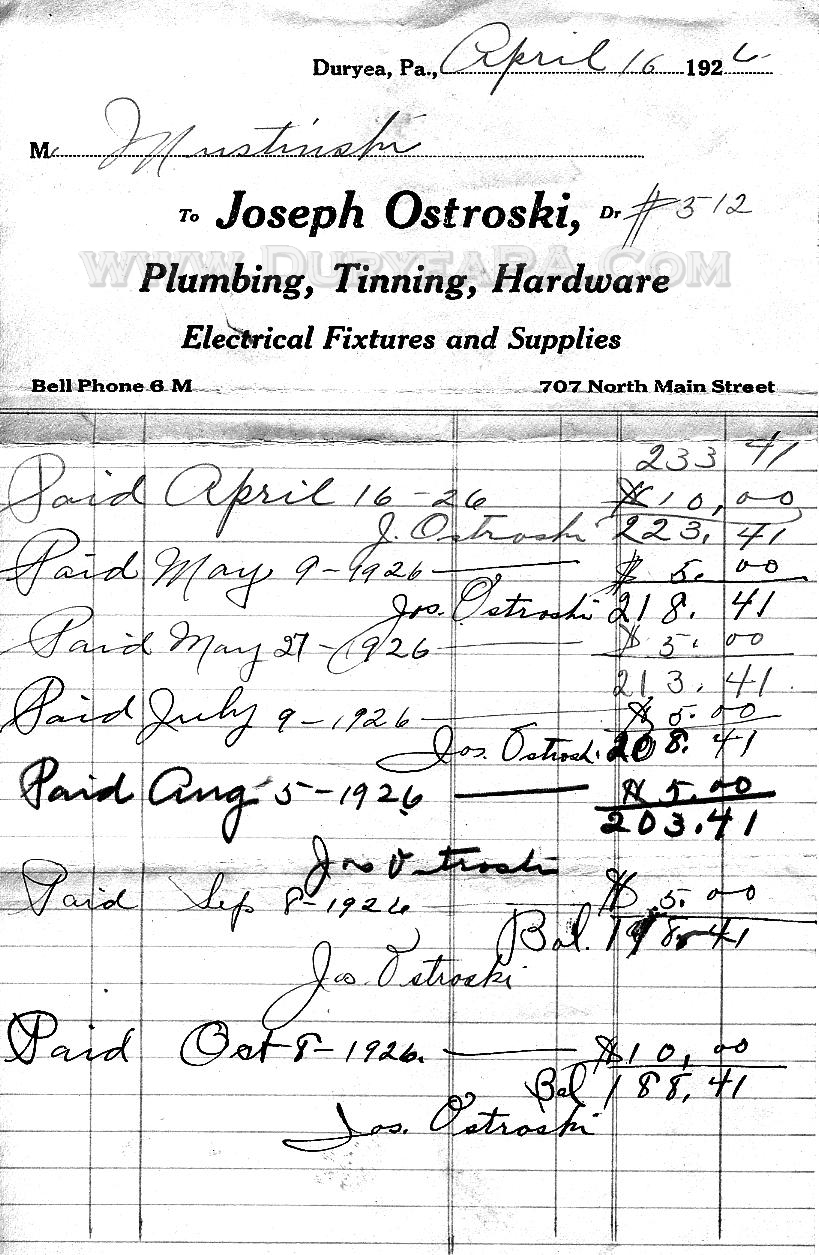 Duryea, Pa., April 16 1926
M Mustinski
To Joseph Ostroski, Dr $512
www.DuryeaPA.Com
Plumbing, Tinning, Hardware
Electrical Fixtures and Supplies
Bell Phone 6 M 707 North Main Street
233 41
Paid April 16 - 26 $10,00
J. Ostroski 223,41
Paid May 9-1926 — $5.00
Jos. Ostroski 218.41
Paid May 27-1926 — $5.00
213.41
Paid July 9-1926 — $5.00
Jos. Ostroski 208.41
Paid Aug 5-1926 — $5.00
203.41
Jos Ostroski
Paid Sep 8-1926 $5.00
Bal. 198.41
Jos. Ostroski
Paid Oct-8-1926. — $10,00
Bal 188.41
Jos. Ostroski